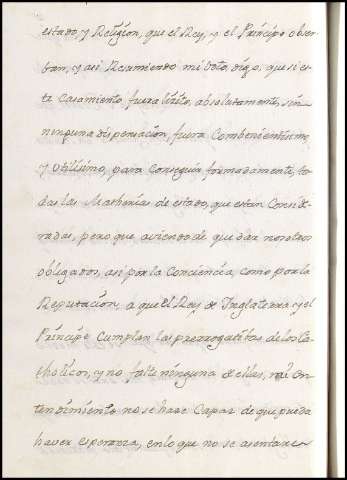 estado, y Religion, que el Rey, y el Principe obser-
ban, y asi Resumiendo mi boto, digo, que si es-
te Casamiento fuera lizito, absolutamente, sin
ninguna dispensacion, fuera Combenientisimo
y Utilisimo, para Conseguir formadamente, to-
das las Matherias de estado, que estan Conside-
radas, pero que aviendo de quedar nosotros
obligados, asi por la Conciencia, como por la
Reputacion, a que El Rey de Inglaterra y el
Principe Cumplan las prerrogatibas de los Ca-
tholicos, y no falte ninguna de ellas, mi En-
tendimiento no se hace Capaz de que pueda
haver esperanza, en lo que no se asentare